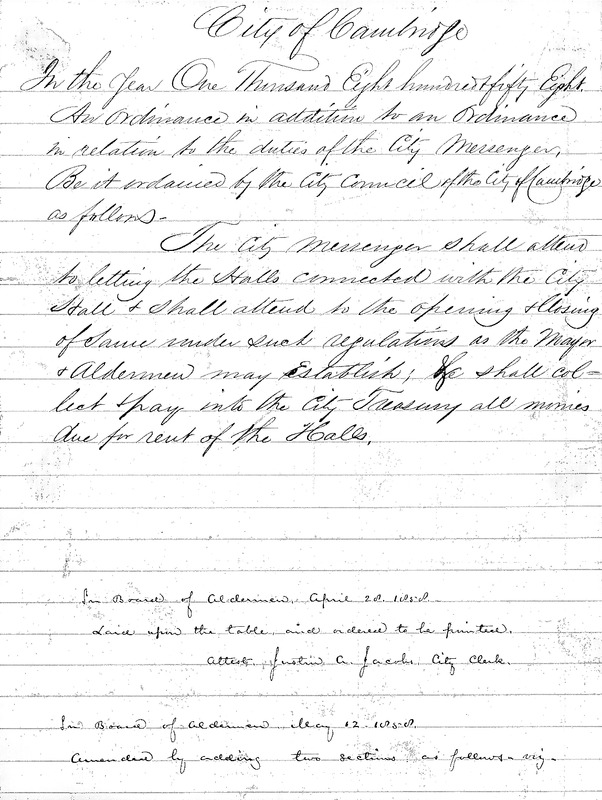 City of Cambridge
In the Year One Thousand Eight hundred & fifty Eight.
An Ordinance in addition to an Ordinance
in relation to the duties of the City Messenger.
Be it ordained by the City Council of the City of Cambridge
as follows -
The City Messenger shall attend
to letting the Halls connected with the City
Hall & shall attend to the opening & closing
of same under such regulations as the Mayor
& Aldermen may Establish; He shall col=
lect & pay into the City Treasury all monies
due for rent of the Halls.
In Board of Aldermen, April 28. 1858.
Laid upon the table, and ordered to be printed.
Attest, Justin A. Jacobs, City Clerk.
In Board of Aldermen May 12. 1858.
Amended by adding two sections as follows - viz -